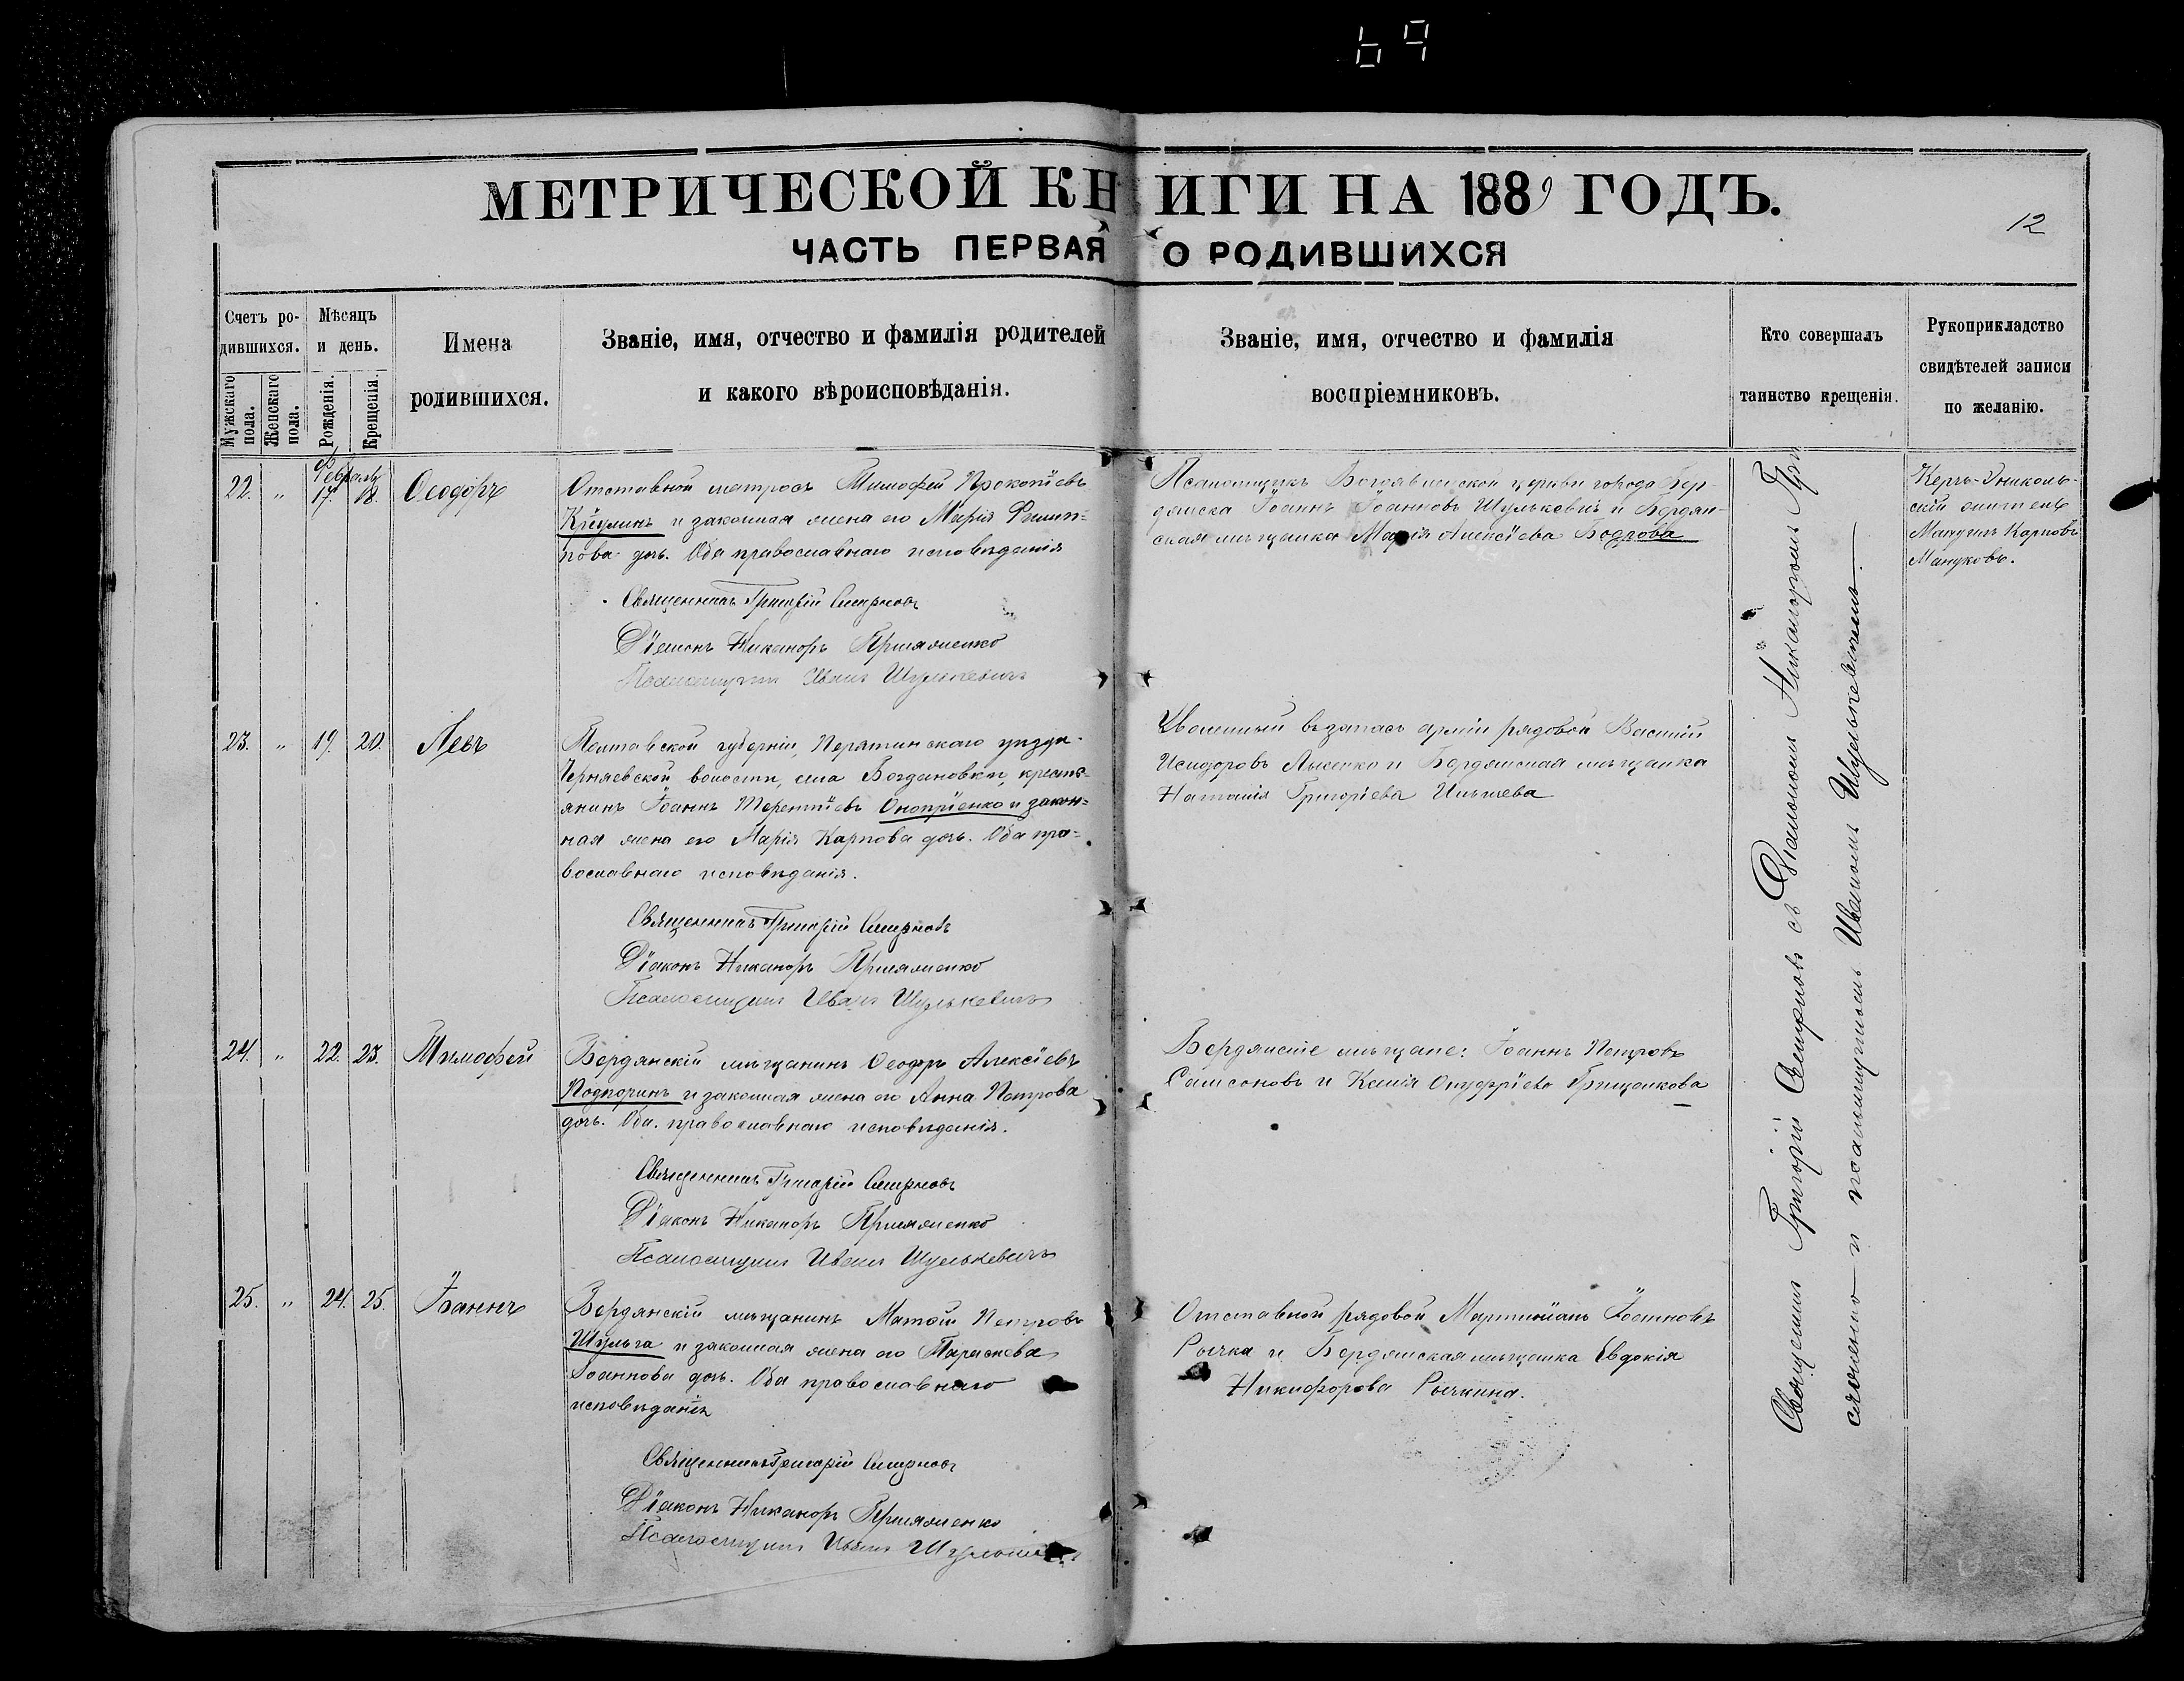 МЕТРИЧЕСКОЙ КНИГИ НА 1889 ГОДЪ.
12
ЧАСТЬ ПЕРВАЯ О РОДИВШИХСЯ
Счетъ родившихся.
Мужскаго пола.
Женскаго пола.
Мѣсяцъ и день.
Рожденія.
Крещенія.
Имена
родившихся.
Званіе, имя, отчество и фамилія родителей
и какого вѣроисповѣданія.
Званіе, имя, отчество и фамилія
воспріемниковъ.
Кто совершалъ
таинство крещенія.
Рукоприкладство
свидѣтелей записи
по желанію.
Февраль
22. " 17. 18. Ѳеодоръ
Отставной матросъ Тимофей Прокопіевъ
и законная жена его Марія Филип-
пова дочь. Оба православнаго исповѣданія
Священникъ Григорій Смирновъ
Діаконъ Никаноръ
Псаломщикъ Иванъ Шулькевичъ
Псаломщикъ Богоявленской церкви города Бер-
дянска Іоаннъ Іоанновъ Шулькевичъ и Бердян-
ская мѣщанка Марія Алексіева Бодрова
Керчь-Эниколь-
скій
Карповъ
23. " 19. 20. Левъ
Полтавской губерніи, Пирятинскаго уѣзда
Черняевской волости, села Богдановки, кресть-
янинъ Іоаннъ Терентіевъ Оноприенко и закон-
ная жена его Марія Карпова дочь. Оба пра-
вославнаго исповѣданія.
Священникъ Григорій Смирновъ
Діаконъ Никаноръ
Псаломщикъ Иванъ Шулькевичъ
Уволенный въ запасъ арміи рядовой Василій
Исидоровъ Лысенко и Бердянская мѣщанка
Наталія Григоріева
24. " 22. 23. Тимофей
Бердянскій мѣщанинъ Ѳеодоръ Алексіевъ
и законная жена его Анна Петрова
дочь. Оба православнаго исповѣданія.
Священникъ Григорій Смирновъ
Діаконъ Никаноръ
Псаломщикъ Иванъ Шулькевичъ
Бердянскіе мѣщане: Іоаннъ Петровъ
Самсоновъ и Ксенія Онуфріева Грищенкова
25. " 24. 25. Іоаннъ
Бердянскій мѣщанинъ Матѳій Петровъ
Шульга и законная жена его Параскева
Іоаннова дочь. Оба православнаго
исповѣданія
Священникъ Григорій Смирновъ
Діаконъ Никаноръ
Псаломщикъ Иванъ
Отставной рядовой Мартиніанъ Іоанновъ
Рычка и Бердянская мѣщанка Евдокія
Никифорова Рычкина.
Священникъ Григорій Смирновъ съ Діакономъ Никаноромъ
и псаломщикомъ Иваномъ Шулькевичемъ